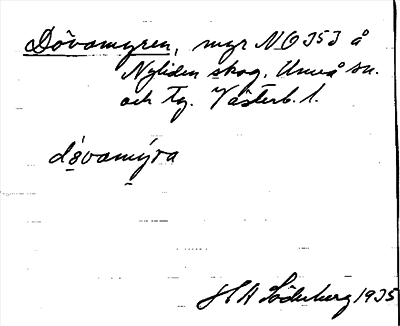 Dövamyren, myr NO 353 å
Nyliden skog, Umeå sn.
och tg. Västerb. l.
dövamýra
H A Söderberg 1935